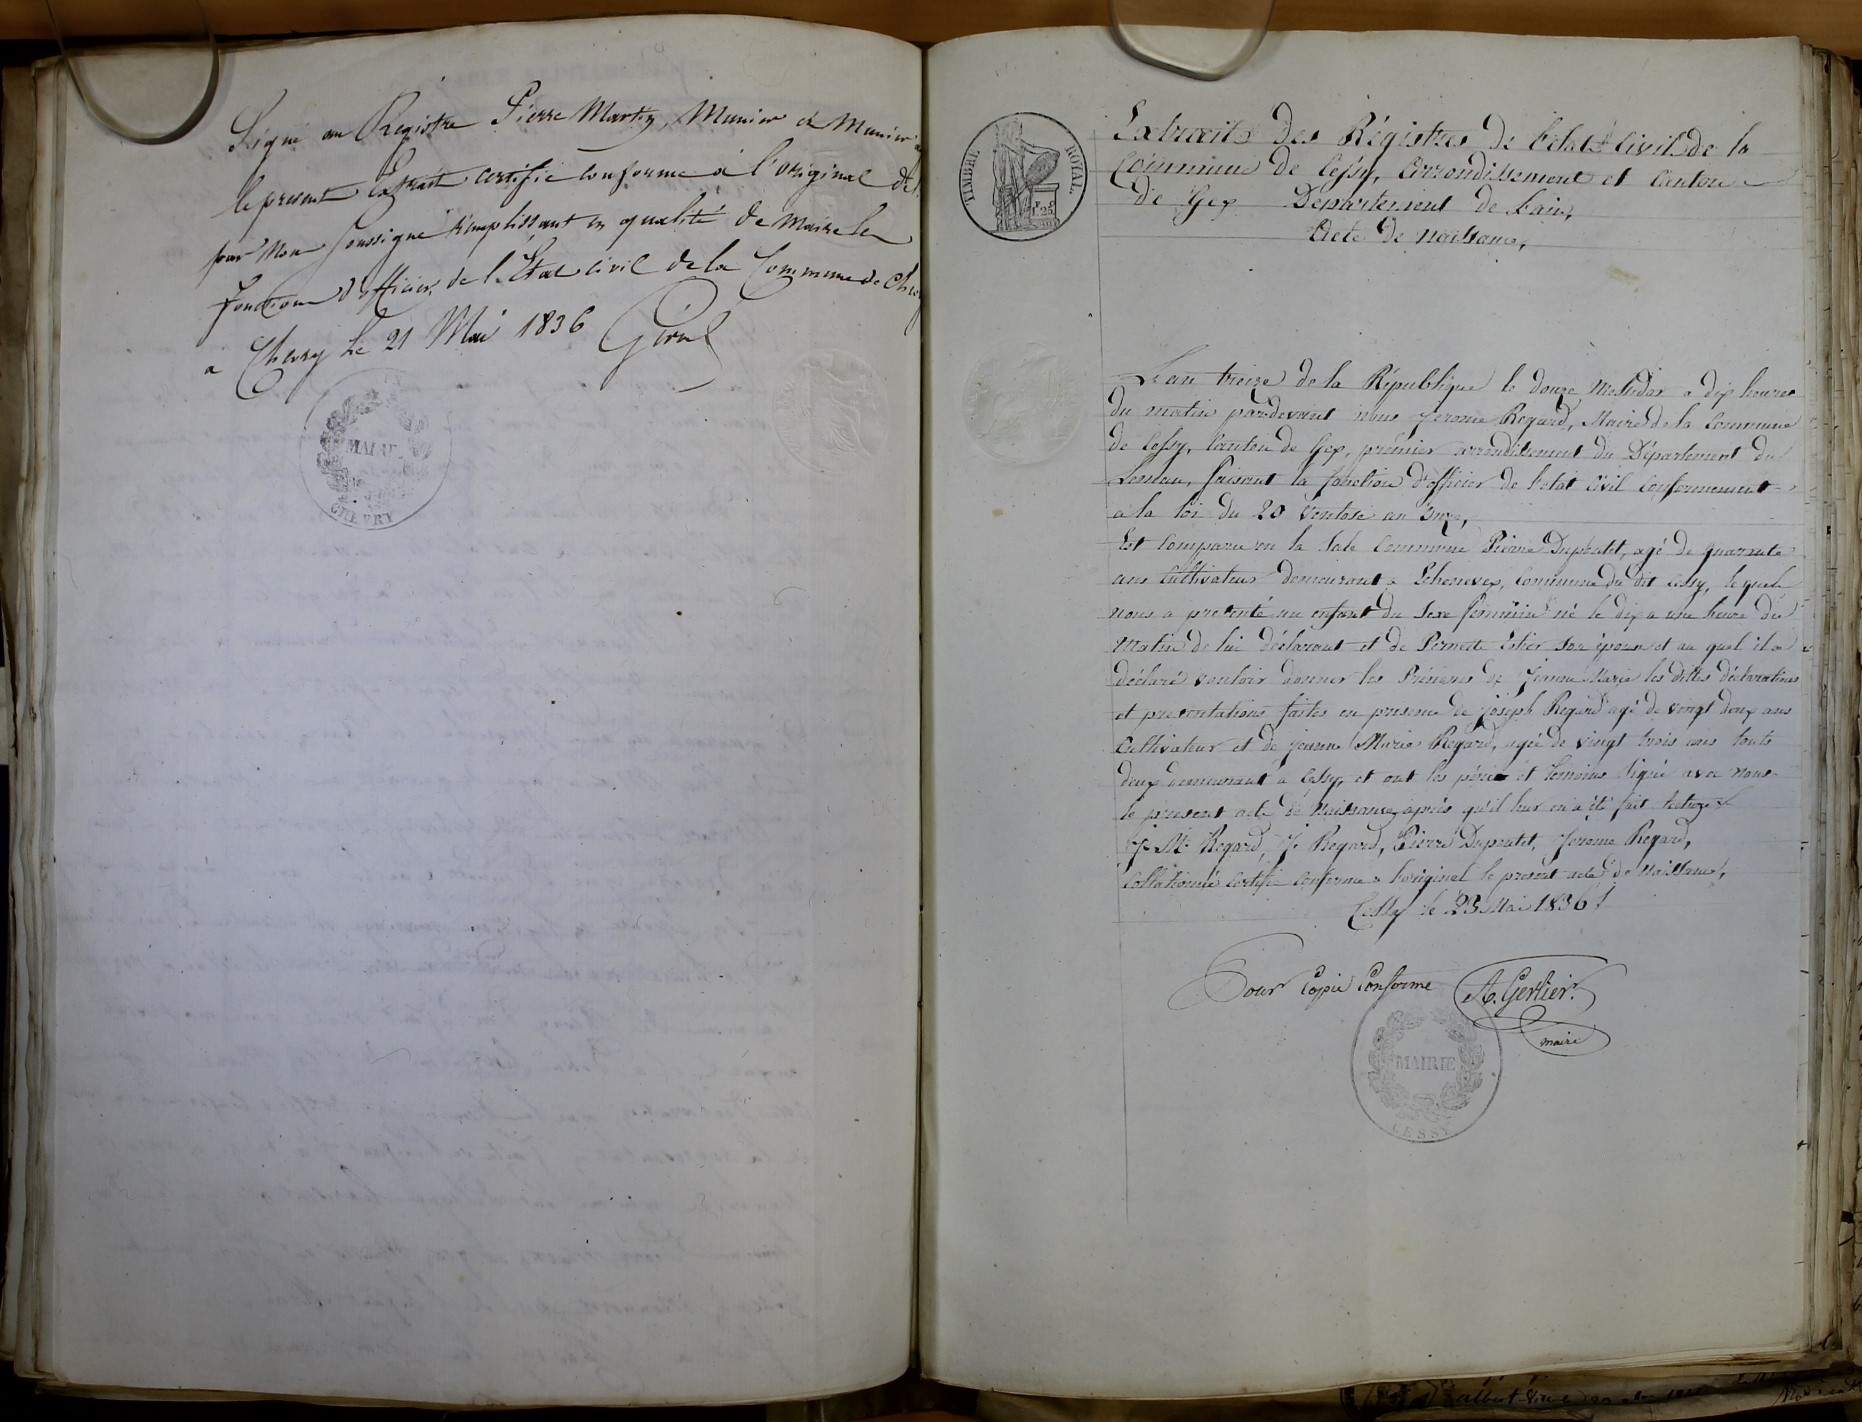 Signé au Registre Pierre Martin, Munier et Munier
le présent Extrait certifié conforme à l'original
par Nous soussigné remplissant en qualité de Maire les
fonctions d'officier de l'Etat civil de la Commune de
à Chevry le 21 Mai 1836 Girod
MAIRIE
CHEVRY
TIMBRE ROYAL
Extrait des Régistres de l'etat civil de la
Commune de Cessy, Arrondissement et Canton
de Gex Département de l'ain,
Acte de naissance,
L'an treize de la République le douze Messidor a dix heures
du matin pardevant nous Jerome Regard, Maire de la Commune
de Cessy, Canton de Gex, prémier arrondissement du Département du
Leman, faisant la fonction d'officier de l'etat Civil Conformement
a la loi du 20 Ventose an onze,
Est Comparu en la Sale Commune Pierre Dupratet, agé de quarante
ans Cultivateur demeurant a Echenevex, Commune du dit Cessy, lequel
nous a presenté un enfant du Sexe féminin né le dix a une heure du
Matin de lui déclarant et de Pernette Estier son épouse et au quel il a
déclaré vouloir donner les Prénoms de Jeanne Marie les dittes déclarations
et presentations faites en presence de Joseph Regard agé de vingt deux ans
Cultivateur et de Jeanne Marie Regard, agée de vingt trois ans touts
deux demeurant a Cessy, et ont les père et témoins Signé avec nous
le présent acte de Naissance, après qu'il leur en a été fait lecture
J. M. Regard, J. Regard, Pierre Dupratet, Jerome Regard,
Collationné certifié conforme a l'original le présent acte de Naissance,
Cessy le 23 Mai 1836
Pour Copie Conforme A. Gerlier.
maire
MAIRIE
CESSY